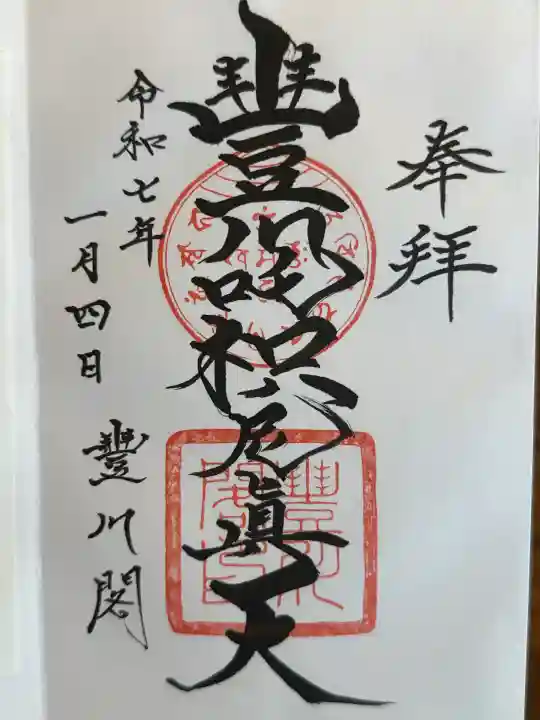 奉拝
豐川吒枳尼眞天
令和七年
一月四日
豐川閣